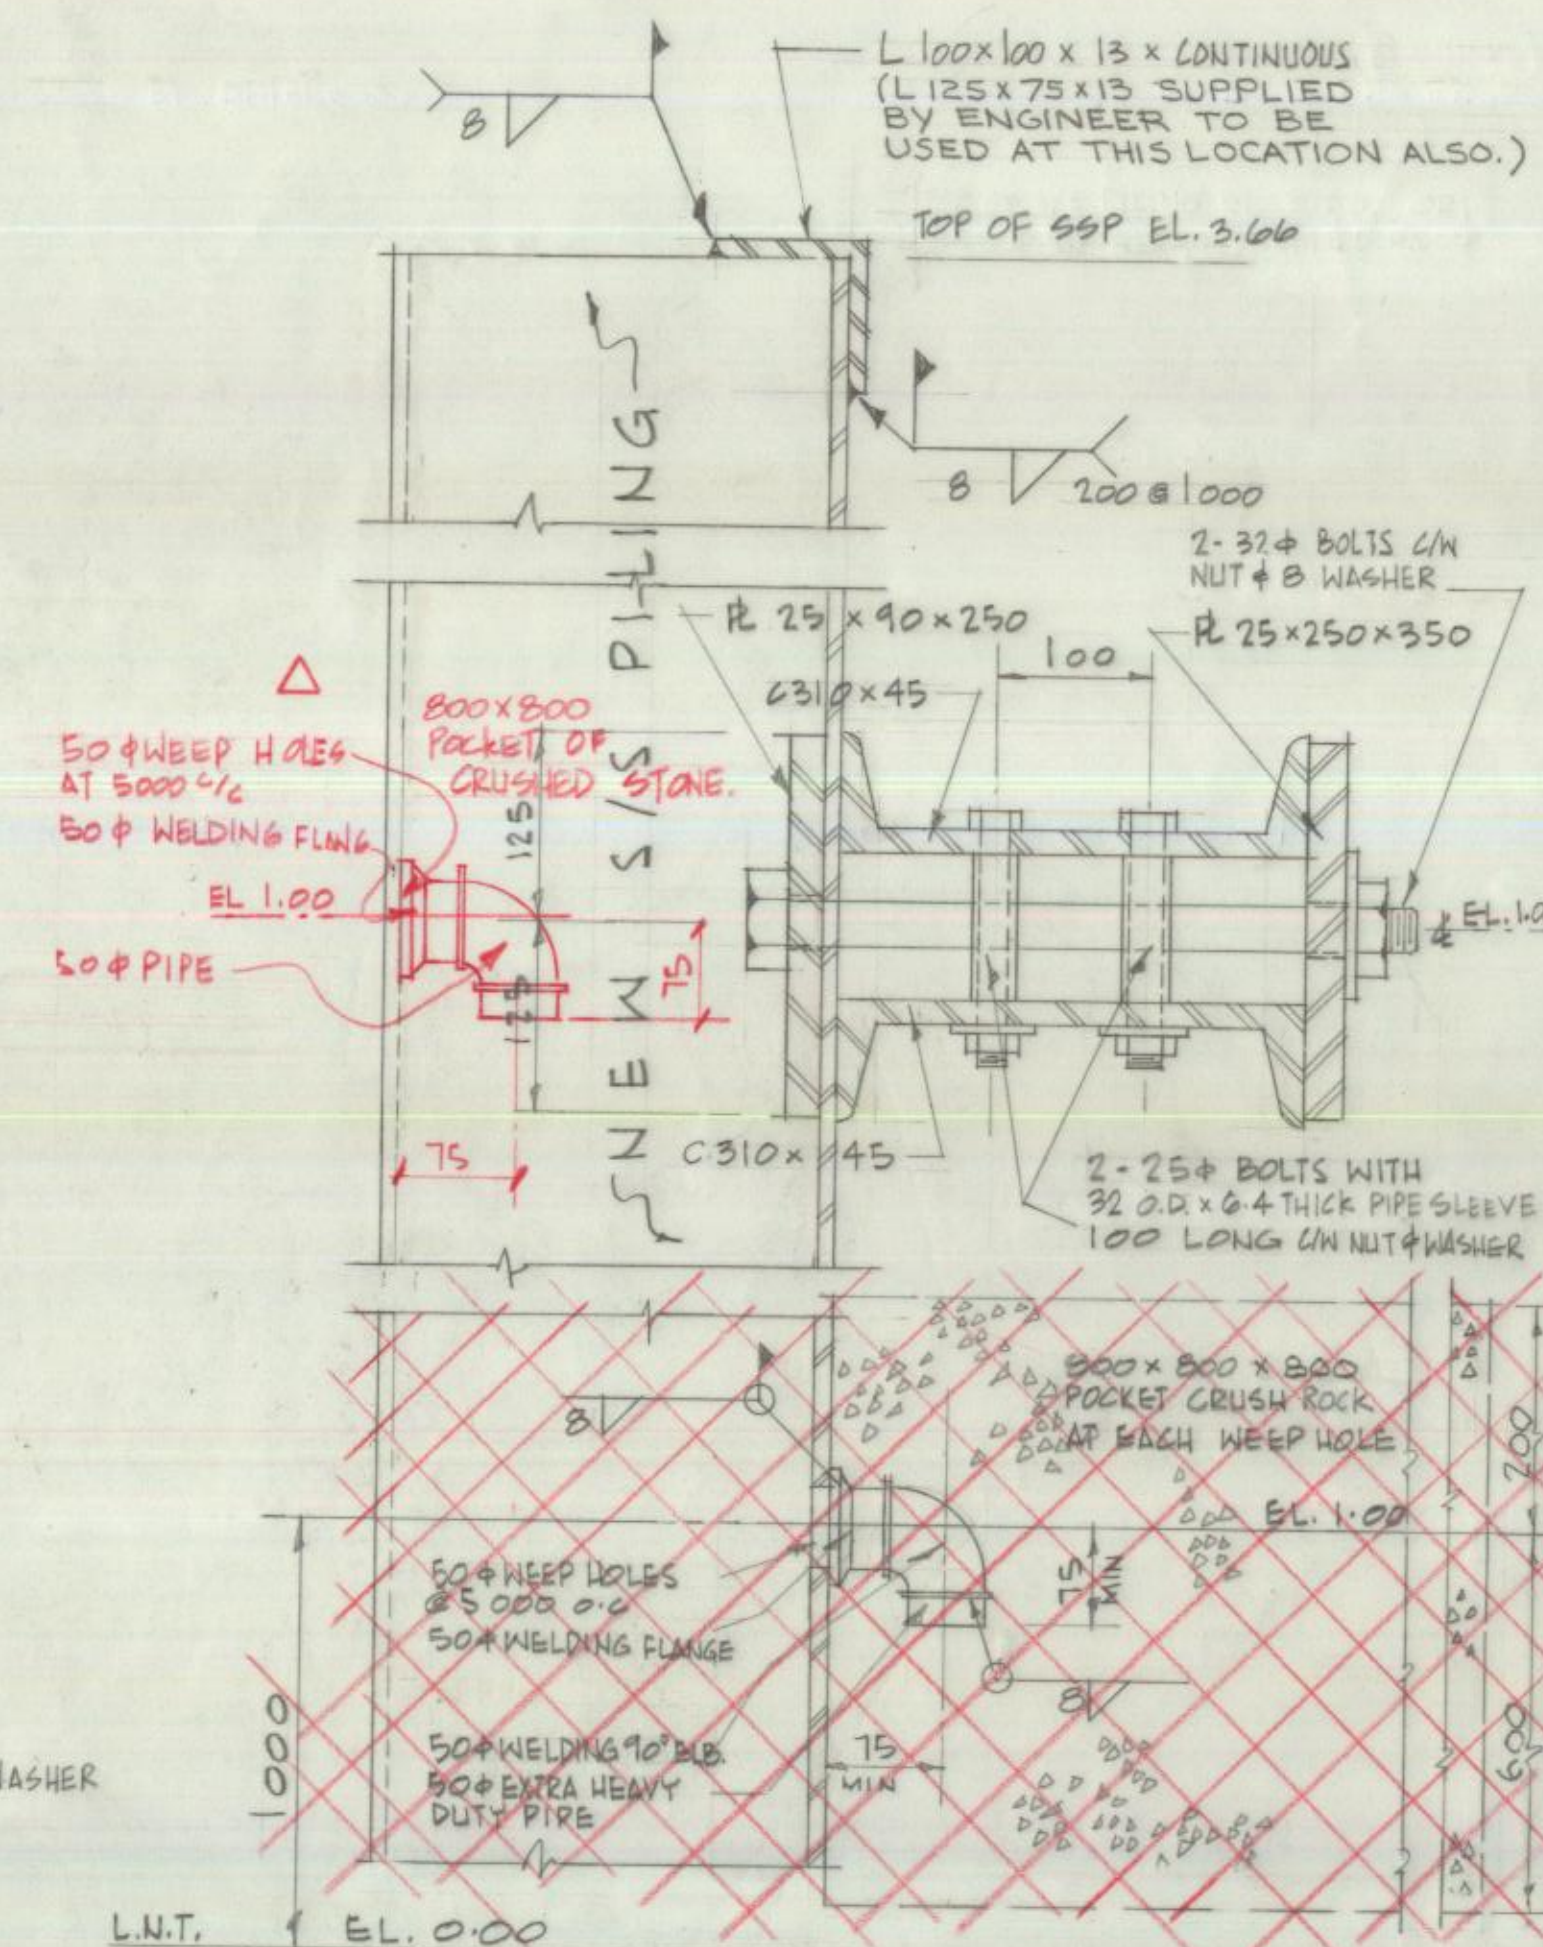 L 100x100 x 13 x CONTINUOUS
(L 125 x 75 x 13 SUPPLIED
BY ENGINEER TO BE
USED AT THIS LOCATION ALSO.)
8
TOP OF SSP EL. 3.66
8 200 @ 1000
2-32φ BOLTS C/W
NUT & 8 WASHER
PL 25 x 90 x 250
PL 25x250x350
100
C310 x 45
NEW S/S PILING
800 x 800
POCKET OF
CRUSHED STONE.
50 φ WEEP HOLES
AT 5000 c/c
50 φ WELDING FLANG
EL 1.00
50 φ PIPE
125
125
75
75
℄ EL. 1.0
C 310 x 45
2-25φ BOLTS WITH
32 O.D. x 6.4 THICK PIPE SLEEVE
100 LONG C/W NUT & WASHER
800 x 800 x 800
POCKET CRUSH ROCK
AT EACH WEEP HOLE
8
200
EL. 1.00
50 φ WEEP HOLES
@ 5000 O.C
50φ WELDING FLANGE
75
MIN
8
50φ WELDING 90° ELB.
50φ EXTRA HEAVY
DUTY PIPE
75
MIN
600
1000
WASHER
L.N.T. EL. 0.00